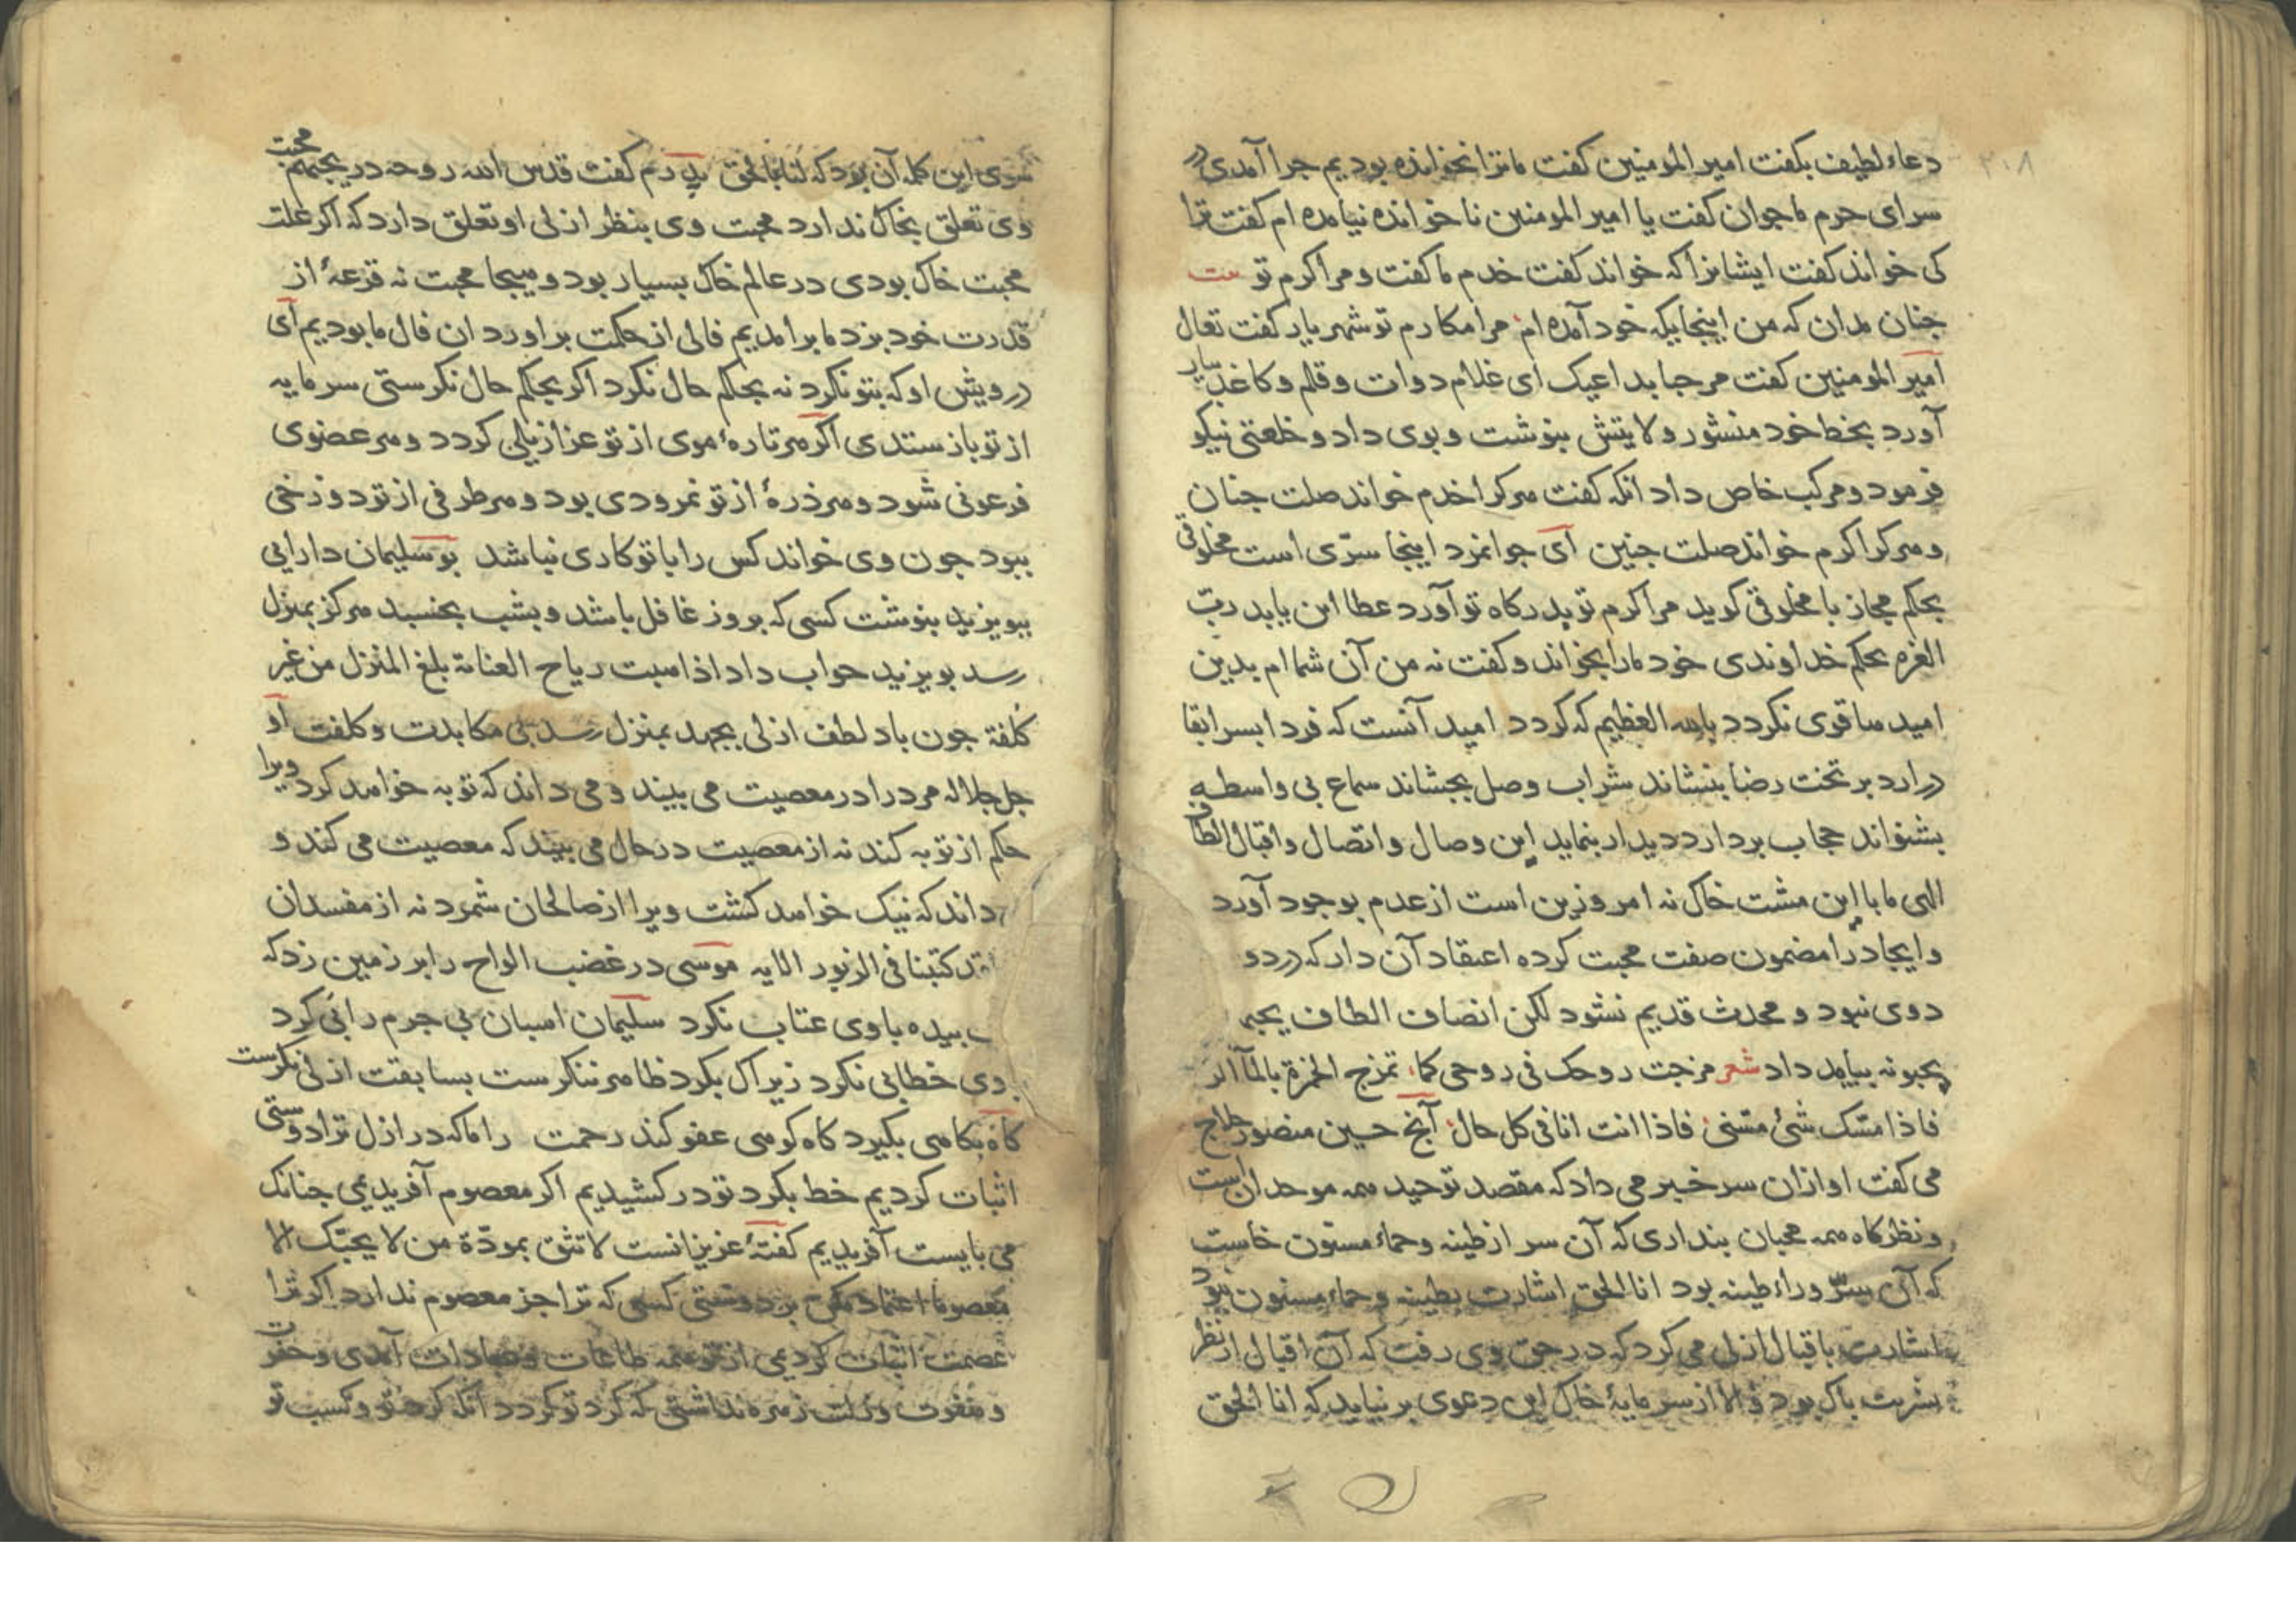 ۲۰۸
دعاء لطیف بکفت امیر المومنین کفت ما ترا نخوانده بودیم جرا آمدی در
سرای حرم ما جوان کفت یا امیر المومنین ناخوانده نیامده ام کفت ترا
کی خواند کفت ایشانرا که خواند کفت خدم ما کفت و مرا کرم تو
جنان مدان که من اینجایکه خود آمده ام مرا مکارم تو شهریار کفت تعال
امیر المومنین کفت مرحبا بداعیک ای غلام دوات و قلم و کاغذ بیار
آورد بخط خود منشور ولایتش بنوشت و بوی داد و خلعتی نیکو
فرمود و مرکب خاص داد انکه کفت هرکرا خدم خواند صلت جنان
و هرکرا کرم خواند صلت جنین ای جوانمرد اینجا سرّی است مخلوقی
بحکم مجاز با مخلوقی کوید مرا کرم تو بدرکاه تو آورد عطا این یابد ربّ
العزه بحکم خداوندی خود مارا بخواند و کفت نه من آن شما ام بدین
امید ما قوی نکردد بالله العظیم که کردد امید آنست که فردا بسرا بقا
درارد بر تخت رضا بنشاند شراب وصل بجشاند سماع بی واسطه
بشنواند حجاب بردارد دیدار بنماید این وصال و اتصال و اقبال الطاف
الهی ما با این مشت خاک نه امروزین است از عدم بوجود آورد
و ایجاد را مضمون صفت محبت کرده اعتقاد آن دار که در دو
دوی نبود و محدث قدیم نشود لکن انصاف الطاف یحبهم
یحبونه بباید داد شعر مزجت روحک فی روحی کما تمزج الخمرة بالمآ الز
فاذا مسّک شئ مسّنی فاذا انت انا فی کل حال آنج حسین منصور حلاج
می کفت او ازان سر خبر می داد که مقصد توحید همه موحدان است
و نظرکاه همه محبان بنداری که آن سر از طینه و حماء مسنون خاست
که آن سرّ وراء طینه بود انا الحق اشارت بطینه و حماء مسنون نبود
اشارت باقبال ازلی می کرد که در حق وی رفت که آن اقبال از نظر
بشریت باک بود و الا از سرمایهٔ خاک این دعوی برنیاید که انا الحق
سزی این کله آن بود که انا بالحق بدرم کفت قدس الله روحه در یحبهم محبت
وی تعلق بخاک ندارد محبت وی بنظر ازلی او تعلق دارد که اکر علت
محبت خاک بودی در عالم خاک بسیار بود و هیجا محبت نه قرعهٔ از
قدرت خود بزد ما برامدیم فالی از حکمت براورد ان فال ما بودیم ای
درویش او که بتو نکرد نه بحکم حال نکرد اکر بحکم حال نکرستی سرمایه
از تو باز ستدی اکر هر تارهٔ موی از تو عزازیلی کردد و هر عضوی
فرعونی شود و هر ذرهٔ از تو نمرودی بود و هر طرفی از تو دوزخی
ببود جون وی خواند کس را با تو کاری نباشد بو سلیمان دارایی
ببویزید بنوشت کسی که بروز غافل باشد و بشب بخسبد هرکز بمنزل
رسد بویزید جواب داد اذا هبت ریاح العنایة بلغ المنزل من غیر
کلفة جون باد لطف ازلی بجهد بمنزل رسد بی مکابدت و کلفت او
جل جلاله مرد را در معصیت می بیند و می داند که توبه خواهد کرد ویرا
حکم از توبه کند نه از معصیت در حال می بیند که معصیت می کند و
داند که نیک خواهد کشت ویرا از صالحان شمرد نه از مفسدان
کتبنا فی الزبور الایه موسی در غضب الواح را بر زمین زد که
با وی عتاب نکرد سلیمان اسبان بی جرم را بی کرد
وی خطابی نکرد زیراک بکرد ظاهر ننکرست بسابقت ازلی نکرست
کاه بکاهی بکیرد کاه کوهی عفو کند رحمت راماکه در ازل ترا دوستی
اثبات کردیم خط بکرد تو در کشیدیم اکر معصوم آفریدیمی جنانک
می بایست آفریدیم کفتهٔ عزیزانست لا تثق بمودّة من لا یحبّک الا
معصوما اعتماد مکن بر دوستی کسی که ترا جز معصوم ندارد اکر ترا
عصمت اثبات کردیمی از تو همه طاعات و عبادات آمدی و حفرت
و مغفرت و زلت زهره نداشتی که کرد تو کردد انکه کرد تو و کسب تو